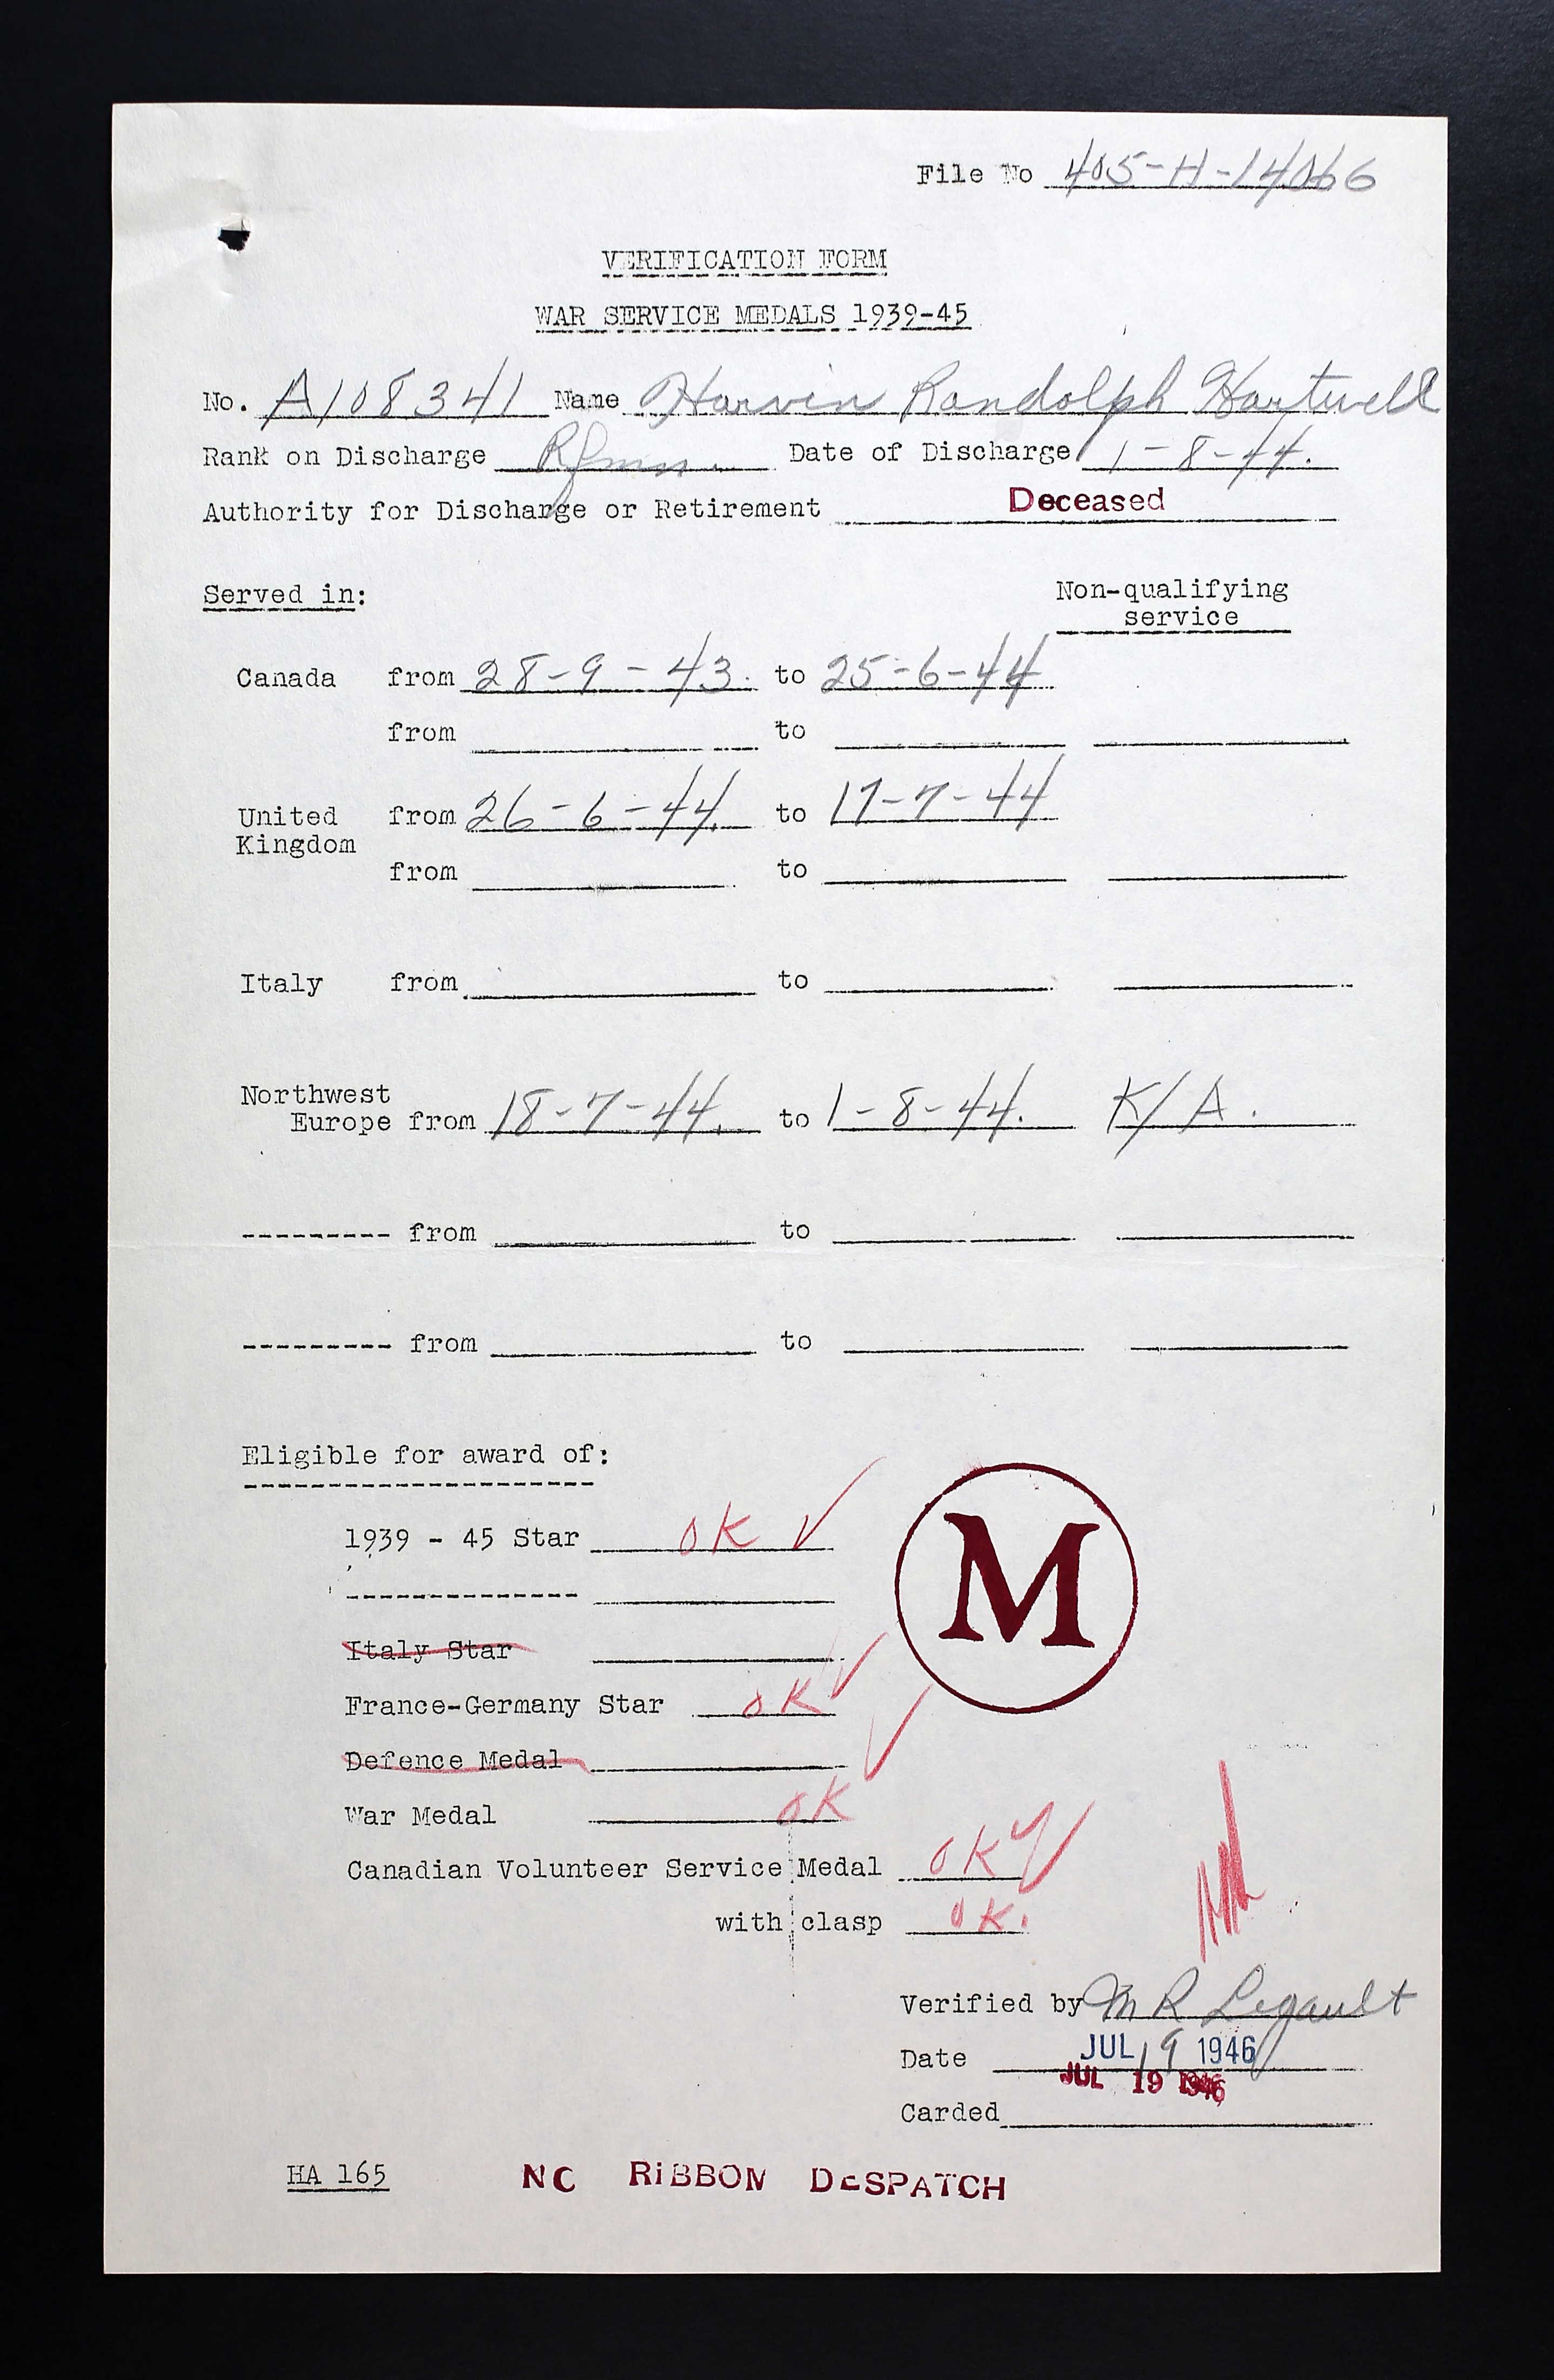 File No 405-H-14066
VERIFICATION FORM
WAR SERVICE MEDALS 1939-45
No. A108341 Name Harvin Randolph Hartwell
Rank on Discharge Rfmn. Date of Discharge 1-8-44.
Authority for Discharge or Retirement Deceased
Served in: Non-qualifying
service
Canada from 28-9-43. to 25-6-44
from to
United from 26-6-44. to 17-7-44
Kingdom
from to
Italy from to
Northwest
Europe from 18-7-44. to 1-8-44. K/A.
--------- from to
--------- from to
Eligible for award of:
1939 - 45 Star OK
M
Italy Star
France-Germany Star OK
Defence Medal
War Medal OK
Canadian Volunteer Service Medal OK
with clasp OK.
Verified by M R Legault
Date JUL 19 1946
JUL 19 1946
Carded
HA 165 NC RIBBON DESPATCH